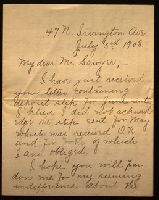 47 N. Irvington Ave
July 3rd 1908
My dear Mr. Sawyer,
I have just received
you letter containing
deposit slip for
I did not acknow
the slip sent for May
which was received O.K.
and for both of which
I am obliged.
I hope you will par
don me for my seeming
indifference about the